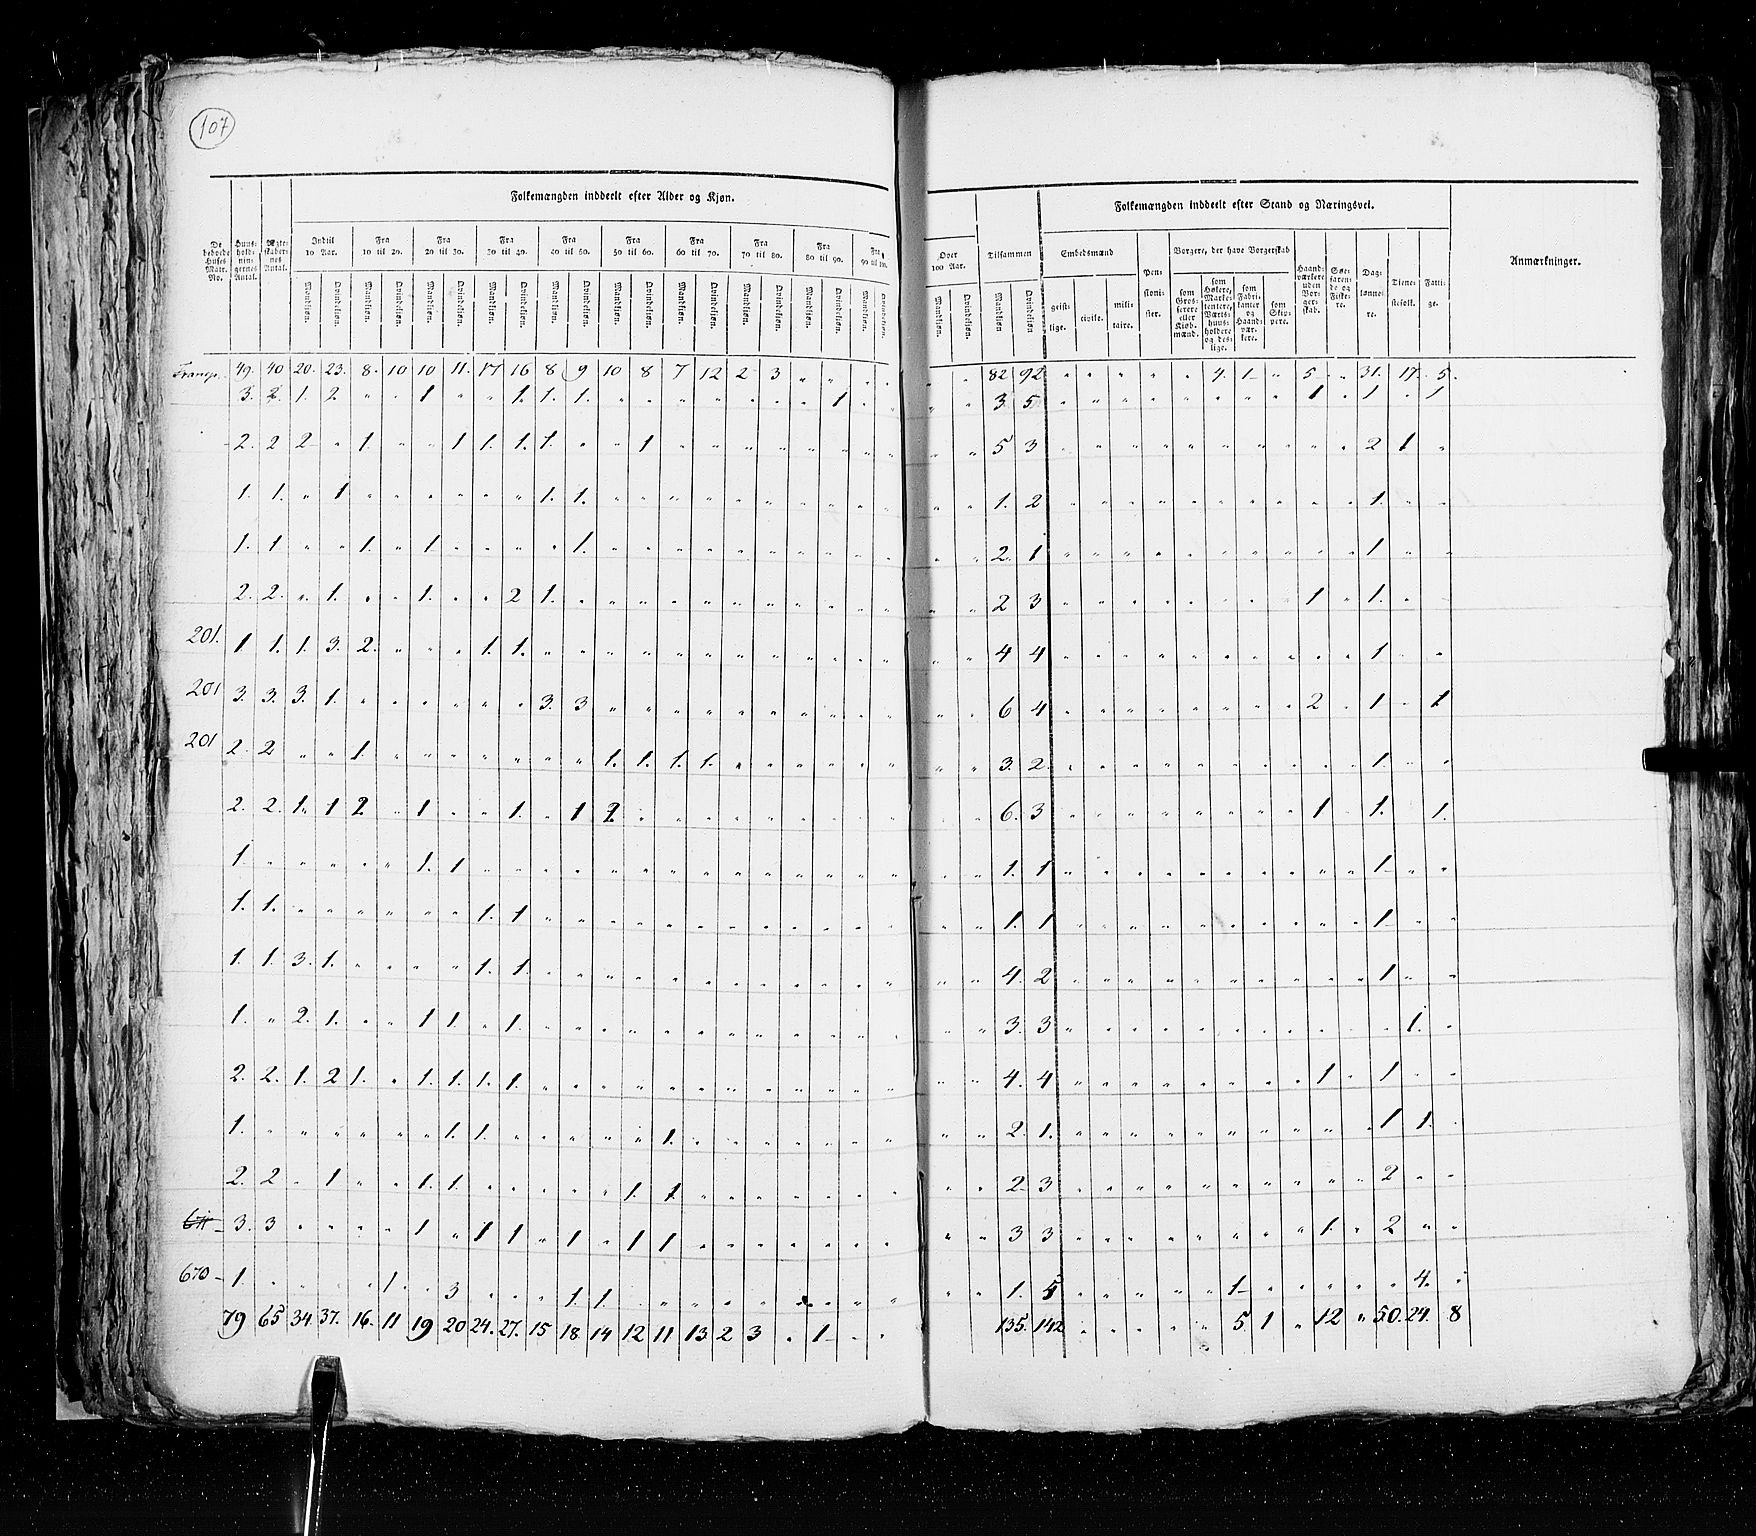 107
Folkemængden inddeelt efter Alder og Kjøn.
Tilsammen
Folkemængden inddeelt efter Stand og Næringsvei.
Anmærkninger.
De beboede Huses Matr. No.
Huusholdningernes Antal.
Ægteskabernes Antal.
Indtil 10 Aar.
Fra 10 til 20.
Fra 20 til 30.
Fra 30 til 40.
Fra 40 til 50.
Fra 50 til 60.
Fra 60 til 70.
Fra 70 til 80.
Fra 80 til 90.
Fra 90 til 100.
Over 100 Aar.
Mandkjøn. Qvindekjøn.
Embedsmænd
geistlige. civile. militaire.
Pensionister.
Borgere, der have Borgerskab
som Grosserere eller Kjøbmænd.
som Høkere, Marketentere, Værtshuusholdere og deslige.
som Fabrikanter og Haandværkere.
som Skippere.
Haandværkere uden Borgerskab.
Søefarende og Fiskere.
Dagtønnere.
Tienestefolk.
Fattige.
Transp. 49. 40 20. 23. 8. 10 10 11. 17 16 8 9 10 8 7 12 2 3 " " " " " " 82 92 " " " " " 4. 1 " 5 " 31. 17. 5.
3. 2. 1. 2 " " 1 " " 1. 1. 1. " " " " " " " 1 " " " " 3. 5 " " " " " " " " 1 " 1 " 1
2. 2 2 " 1. " " 1 1. 1. 1. " " 1 " " " " " " " " " " 5 3 " " " " " " " " " " 2 1 "
1. 1. " 1 " " " " " " 1. 1. " " " " " " " " " " " " 1. 2 " " " " " " " " " " 1. " "
1. 1 " " 1. " 1. " " " " 1. " " " " " " " " " " " " 2. 1 " " " " " " " " " " 1 " "
2. 2. " 1. " " 1. " " 2 1. " " " " " " " " " " " " " 2 3 " " " " " " " " 1 " 1. " "
201. 1 1. 1. 3. 2. " " " 1. 1. " " " " " " " " " " " " " " 4 4 " " " " " " " " " " 1 " "
201 3. 3. 3. 1. " " " " " " 3. 3 " " " " " " " " " " " " 6 4 " " " " " " " " 2 " 1 " 1
201 2. 2 " " 1. " " " " " " " 1. 1. 1. 1. " " " " " " " " 3. 2. " " " " " " " " " " 1. " "
2. 2. 1. 1 2 " 1 " " 1. " 1 2 " " " " " " " " " " " 6. 3 " " " " " " " " 1 " 1. 1.
1. " " " " " 1. 1 " " " " " " " " " " " " " " " " 1. 1 " " " " " " " " " " 1 " "
1. 1. " " " " " " 1. 1 " " " " " " " " " " " " " " 1. 1 " " " " " " " " " " 1 " "
1. 1. 3. 1. " " " " 1. 1. " " " " " " " " " " " " " " 4. 2 " " " " " " " " " " 1 " "
1. " 2. 1. " " 1 1. " 1. " " " " " " " " " " " " " " 3. 3 " " " " " " " " " " " 1. "
2. 2. 1. 2 1. " 1. 1. 1. 1. " " " " " " " " " " " " " " 4. 4 " " " " " " " " 1 " 1 " "
1. " " " " " " 1. 1. " " " " " 1. " " " " " " " " " 2. 1. " " " " " " " " " " 1 1. "
2. 2 " 1 " " 1. 1. " " " " " 1. 1. " " " " " " " " " 2 3 " " " " " " " " " " 2 " "
3. 3 " " " " 1 " 1 1 " 1 " 1 1 " " " " " " " " " 3 3 " " " " " " " " 1. " 2 " "
670 1. " " " " 1. " 3 " " " 1. 1. " " " " " " " " " " " 1. 5 " " " " " 1 " " " " " 4. "
79 65 34. 37. 16. 11 19 20 24. 27. 15 18. 14 12 11 13. 2 3 " 1 " " 135. 142 " " " " " 5 1 " 12 " 50. 24. 8